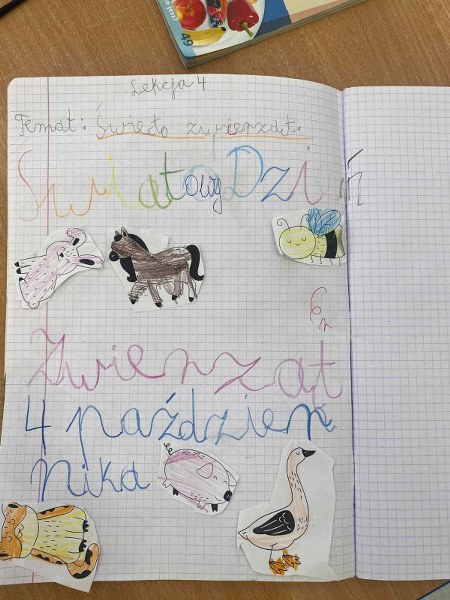 Lekcja 4
Temat: Święto zwierząt.
Światowy Dzień
Zwierząt
4 paździer
nika
49